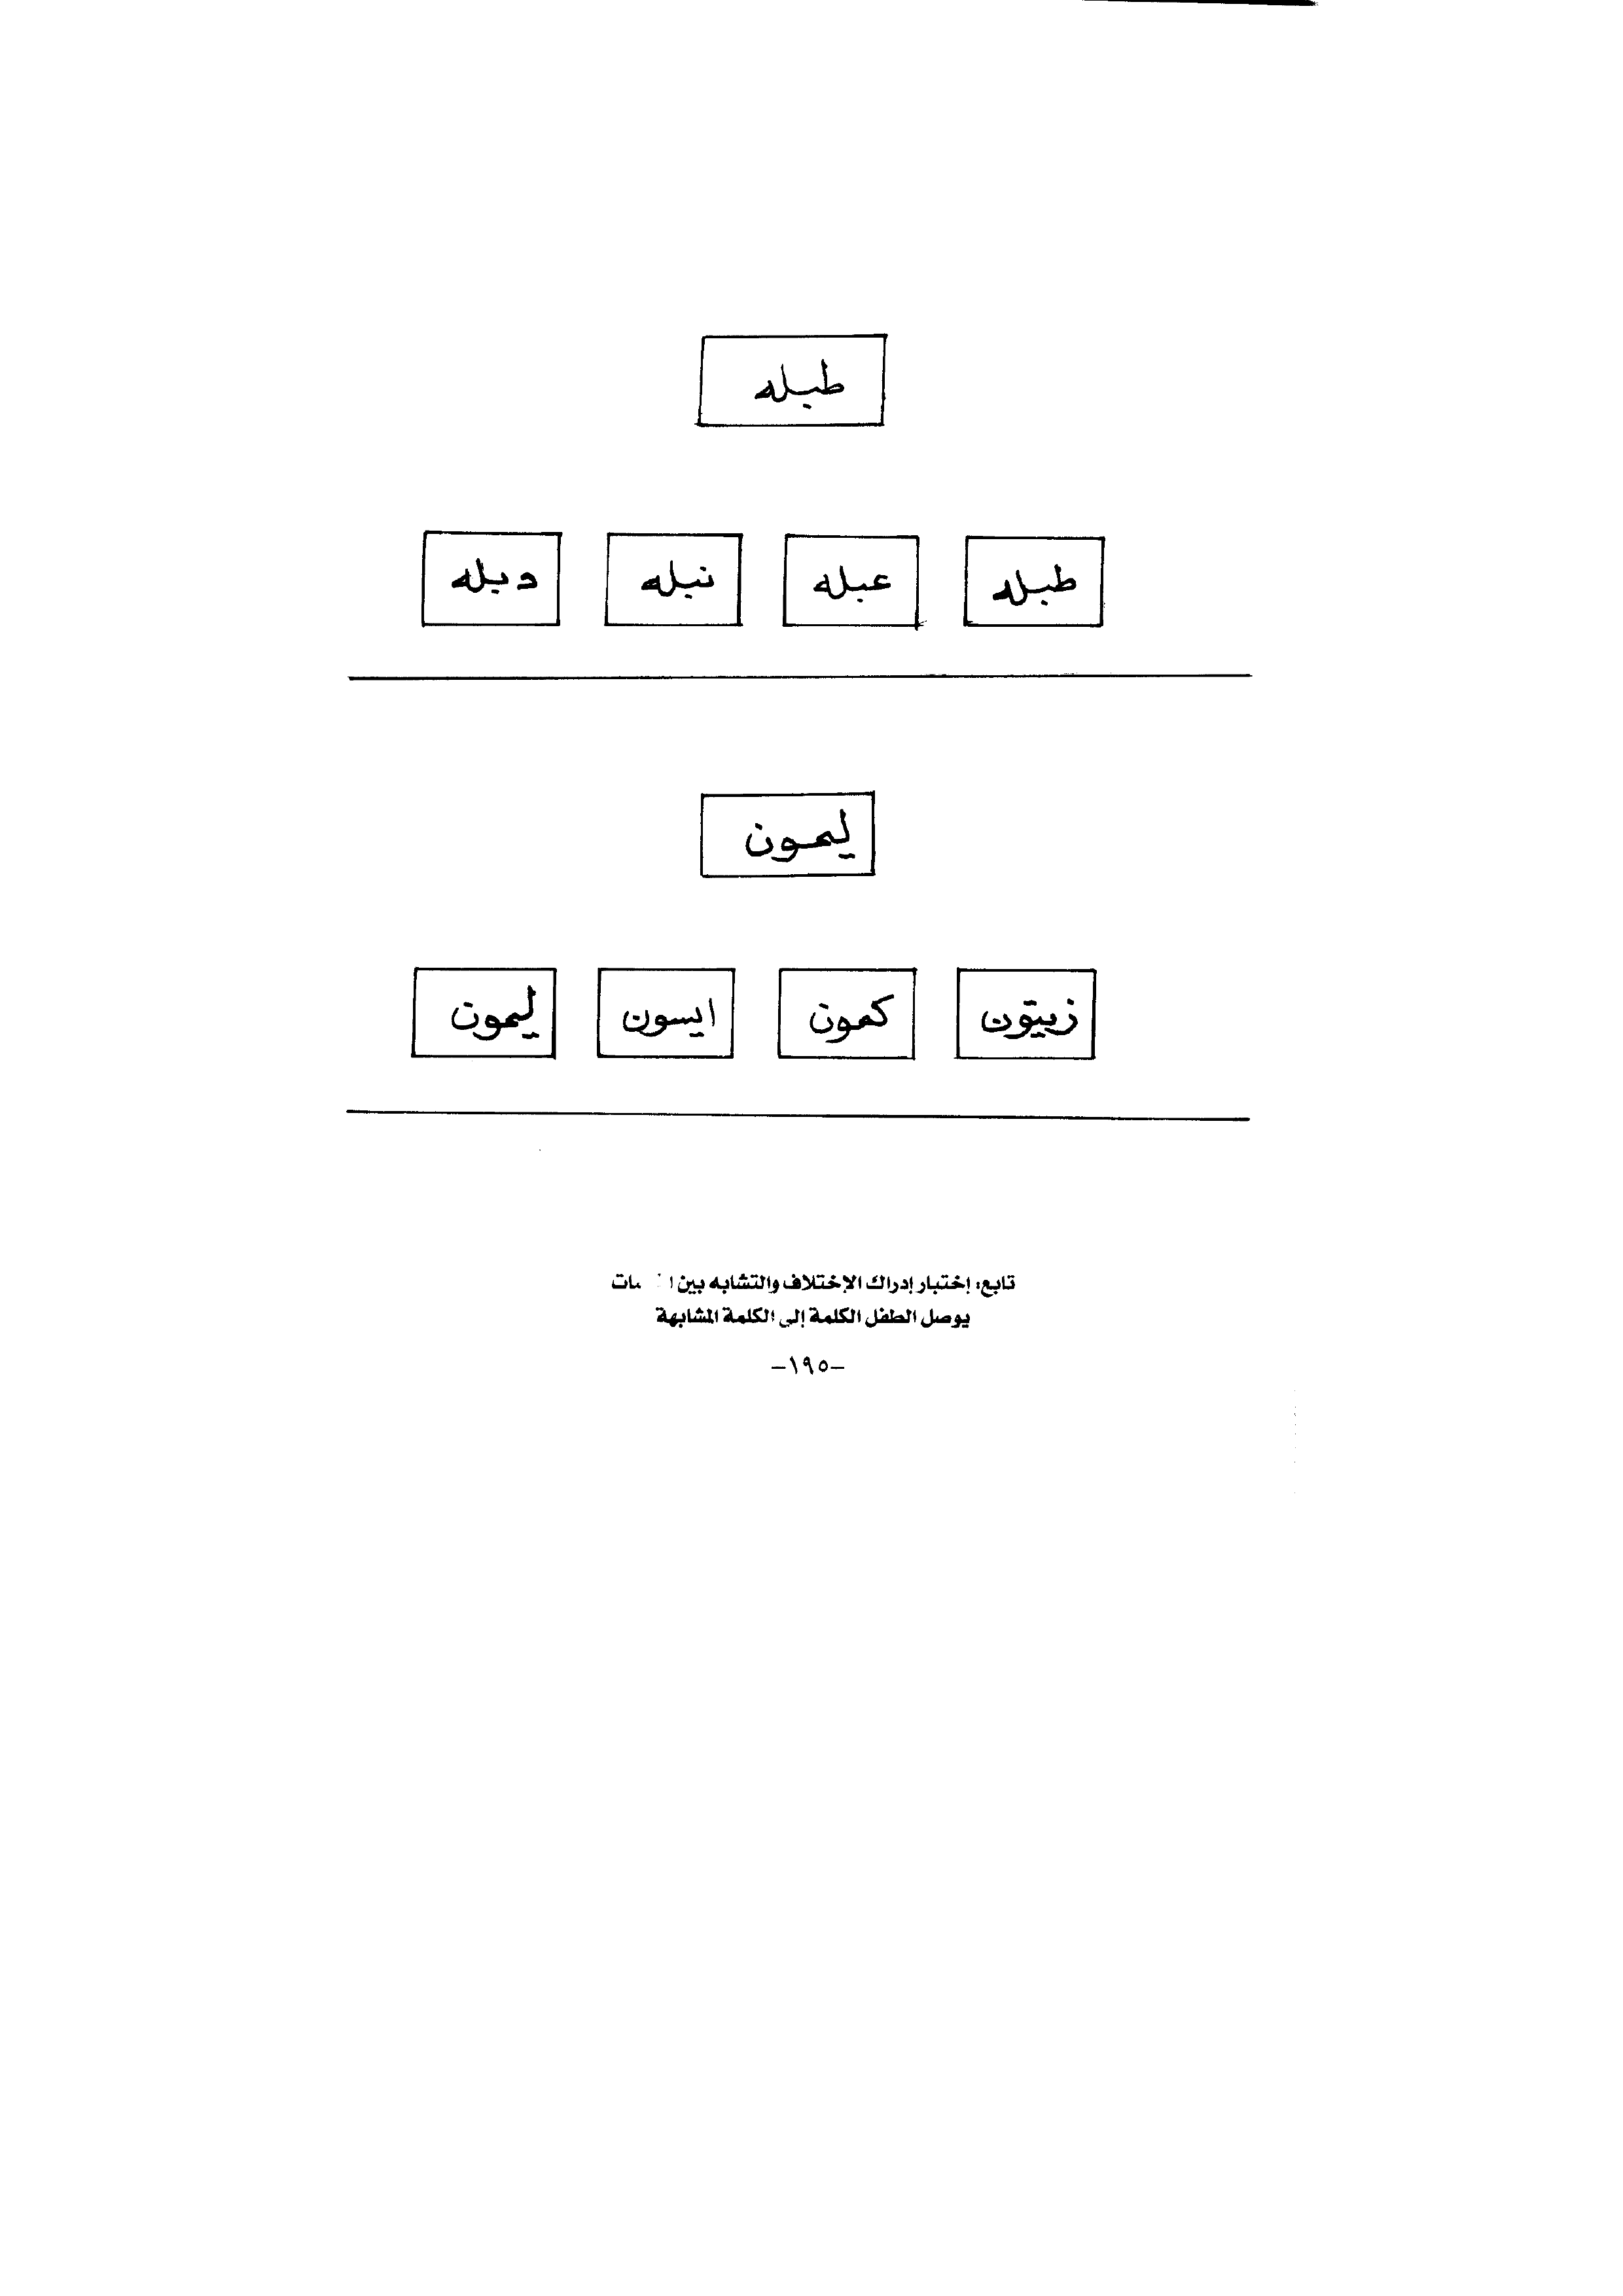 طبله
طبله عبله نبله دبله
ليمون
زيتون كمون ايسون ليمون
تابع: إختبار إدراك الإختلاف والتشابه بين
يوصل الطفل الكلمة إلى الكلمة المشابهة
-١٩٥-